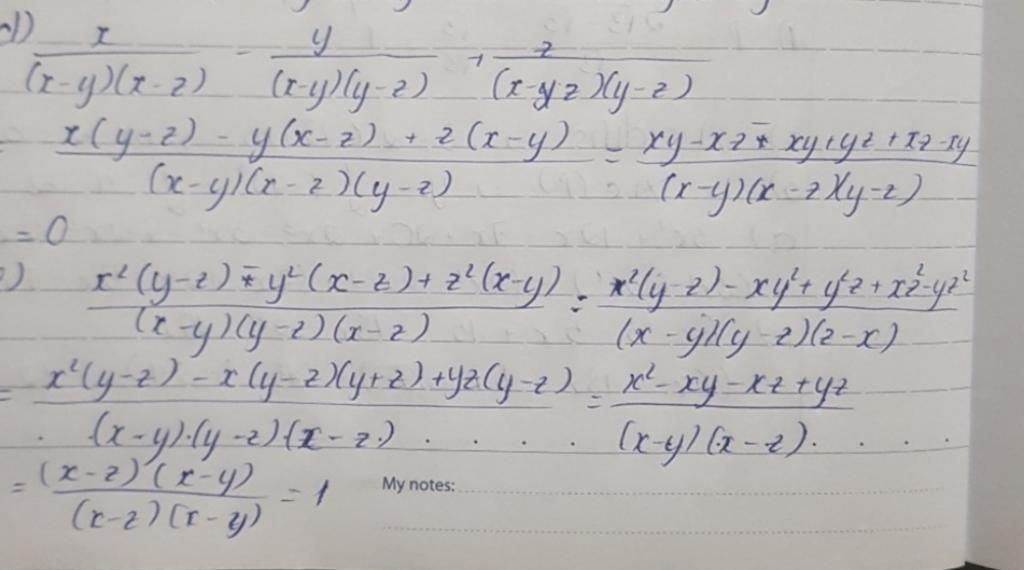 d) x/((x-y)(x-z)) - y/((x-y)(y-z)) + z/((x-z)(y-z))
= (x(y-z) - y(x-z) + z(x-y))/((x-y)(x-z)(y-z)) = (xy-xz-xy+yz+xz-xy)/((x-y)(x-z)(y-z))
= 0
e) (x²(y-z) - y²(x-z) + z²(x-y))/((x-y)(y-z)(x-z)) = (x²(y-z) - xy² + y²z + xz² - yz²)/((x-y)(y-z)(z-x))
= (x²(y-z) - x(y-z)(y+z) + yz(y-z))/((x-y).(y-z)(x-z)) = (x² - xy - xz + yz)/((x-y)(x-z))
= ((x-z)(x-y))/((x-z)(x-y)) = 1
My notes: